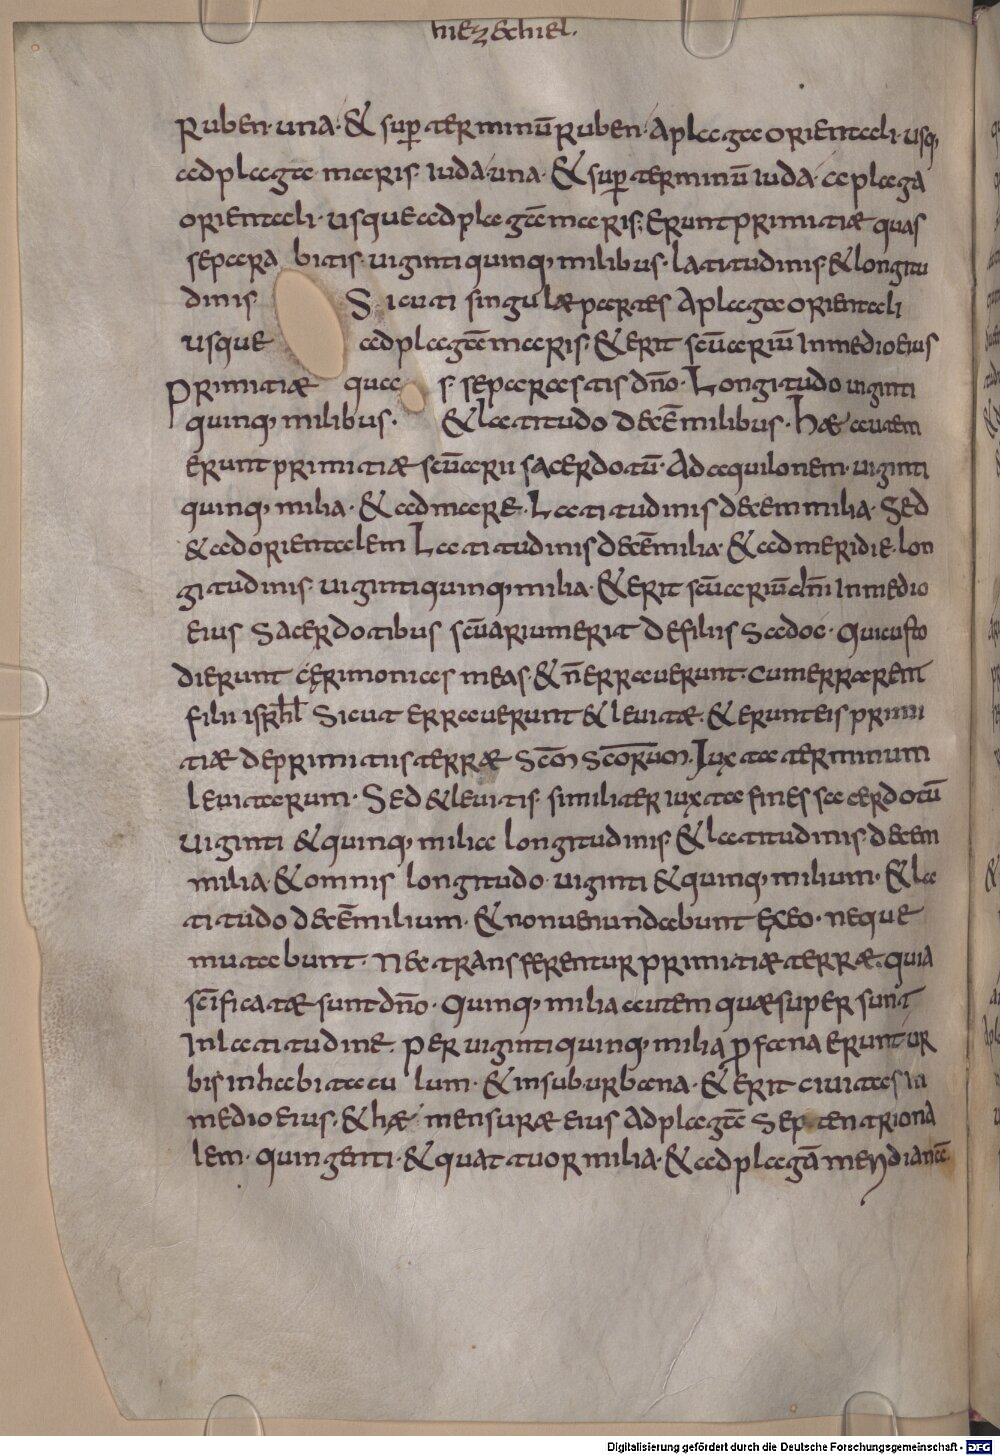 hiezechiel.
Ruben· una· & sup̄ terminū Ruben· A plaga orientali· usq;
ad plaga maris· iuda· una· & sup̄ terminū iuda· a plaga
orientali· usque ad plagā maris; Erunt primitiæ quas
separa bitis· uiginti quinq; milibus· latitudinis· & longitu
dinis S icuti singulæ partes A plaga orientali
usque ad plagā maris· & erit scūariū In medio eius
Primitiæ qua s· separastis dn̄o· Longitudo uiginti
quinq; milibus· & latitudo decē milibus· hæ autem
erunt primitiæ scūarii sacerdotū· Ad aquilonem· uiginti
quinq; milia· & ad mare· Latitudinis decem milia· Sed
& ad orientalem Latitudinis decē milia· & ad meridie· lon
gitudinis· uiginti quinq; milia· & erit scūariū dn̄i In medio
eius Sacerdotibus scūarium erit de filiis Sadoc· Qui custo
dierunt cęrimonias meas· & n̄ erraverunt· cum errarent
filii isrhl̄ Sicut erraverunt & levitæ· & erunt eis primi
tiæ de primitiis terræ Scm̄ Scorūm· Iuxta terminum
levitarum· Sed & levitis· similiter iuxta fines sacerdotū
Uiginti & quinq; milia longitudinis· & latitudinis· decem
milia· & omnis longitudo uiginti & quinq; milium· & la
titudo decē milium· & non uenundabunt ex eo· neque
mutabunt· Nec transferentur primitiæ terræ· quia
scīficatæ sunt dn̄o· Quinq; milia autem quæ super sunt
In latitudine· per uiginti quinq; milia p̄fana erunt ur
bis in habitacu lum· & in suburbana· & erit civitas in
medio eius· & hæ mensuræ eius Ad plagā Septentriona
lem· quingenti· & quattuor milia· & ad plagā meridianā
Digitalisierung gefördert durch die Deutsche Forschungsgemeinschaft - DFG